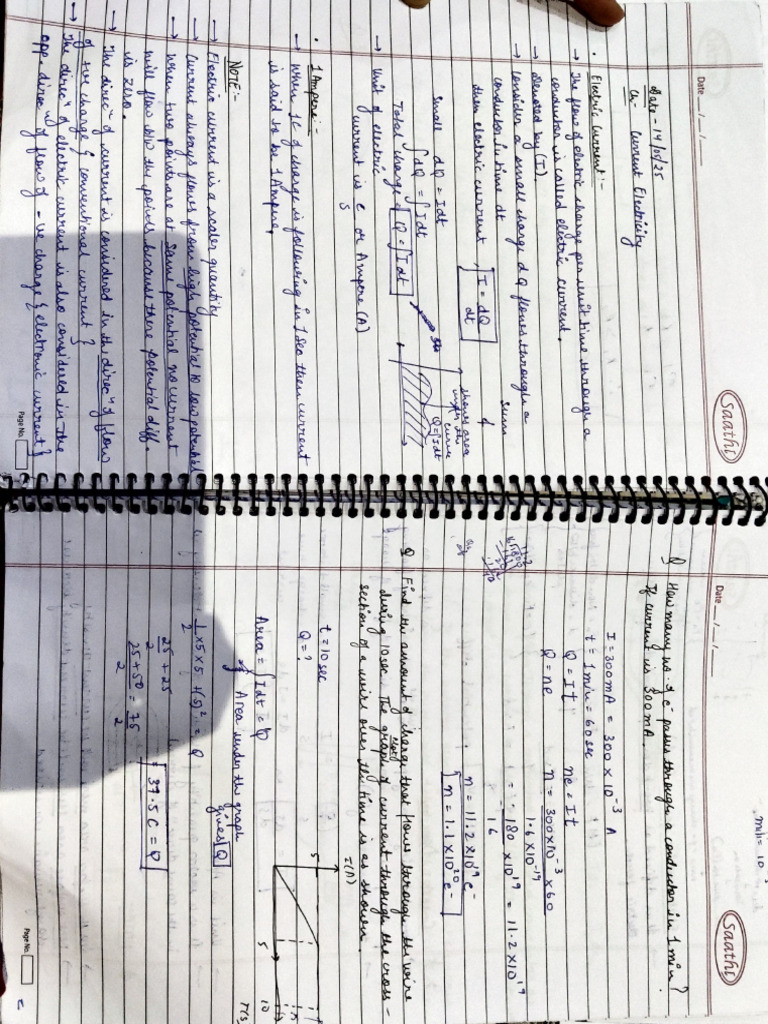 Date __/__/__
Saathi
Date - 14/04/25
Ch- Current Electricity
• Electric Current:-
→ The flow of electric charge per unit time through a
conductor is called electric current.
→ Denoted by (I).
→ Consider a small charge dQ flows through a
conductor in time dt
then electric current I = dQ/dt
Small dQ = Idt
∫dQ = ∫Idt
Total charge Q = ∫Idt
shows area
under the
curve
Q = ∫Idt
→ Unit of electric
current is c/s or Ampere (A)
• 1 Ampere:-
→ When 1C of charge is following in 1 sec then current
is said to be 1 Ampere.
NOTE:-
→ Electric current is a scaler quantity
→ Current always flows from high potential to low potential
→ When two points are at same potential no current
will flow b/w the points because there potential diff.
is zero.
→ The direcⁿ of current is considered in the direcⁿ of flow
of +ve charge { conventional current }
→ The direcⁿ of electric current is also considered in the
opp. direcⁿ of flow of -ve charge { electronic current }
Page No.
Date __/__/__
Saathi
Q How many no. of e⁻ passes through a conductor in 1 min ?
If current is 300mA.
I = 300mA = 300 × 10⁻³ A
t = 1 min = 60 sec
Q = It ne = It
Q = ne n = 300×10⁻³ × 60
1.6 × 10⁻¹⁹
= 180 × 10¹⁹ = 11.2 × 10¹⁹
1.6
n = 11.2 × 10¹⁹ e⁻
n = 1.1 × 10²⁰ e⁻
Q Find the amount of charge that flows through the wire
during 10 sec. The graph of current through the cross-
section of a wire over the time is as shown.
I(A)
5
5
10
T(s)
t = 10 sec
Q = ?
Area = ∫Idt = Q
Area under the graph
gives Q
1/2 × 5 × 5 + (5)² = Q
25/2 + 25
25+50/2 = 75/2
37.5 C = Q
Page No.